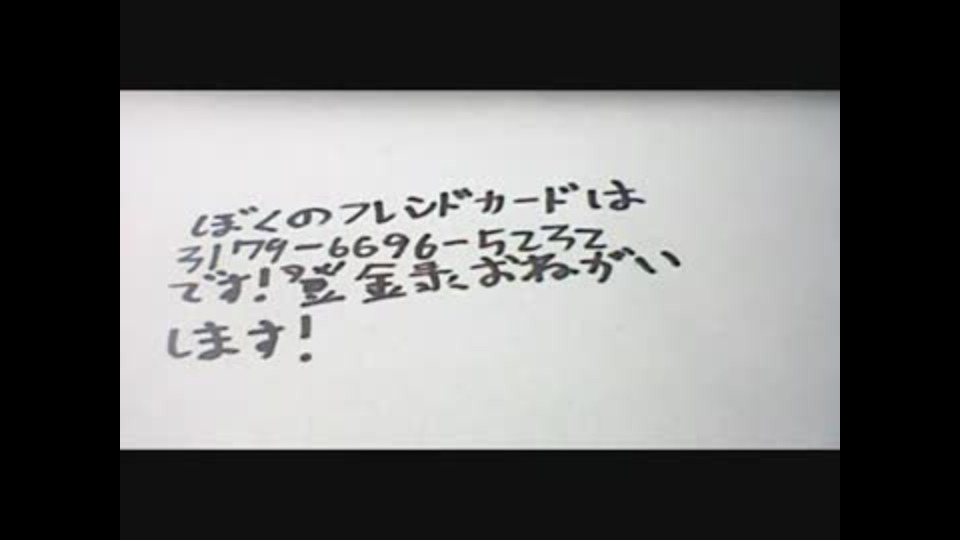 ぼくのフレンドカードは
3179-6696-5232
です!登録おねがい
します!